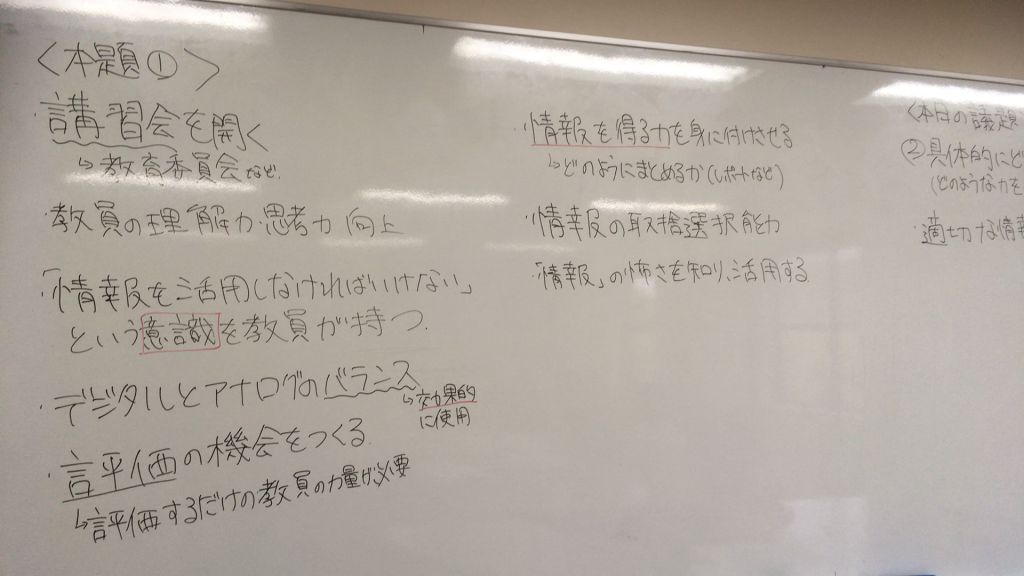 〈本題①〉
・講習会を開く
↳教育委員会など.
・教員の理解力・思考力 向上
・「情報を活用しなければいけない」
という意識を教員が持つ.
・デジタルとアナログのバランス
↳効果的
に使用
・評価の機会をつくる.
↳評価するだけの教員の力量が必要
・情報を得る力を身に付けさせる
↳どのようにまとめるか(レポートなど)
・情報の取捨選択能力
・「情報」の怖さを知り、活用する
〈本日の議題
②具体的にど
(どのような力を
・適切な情報